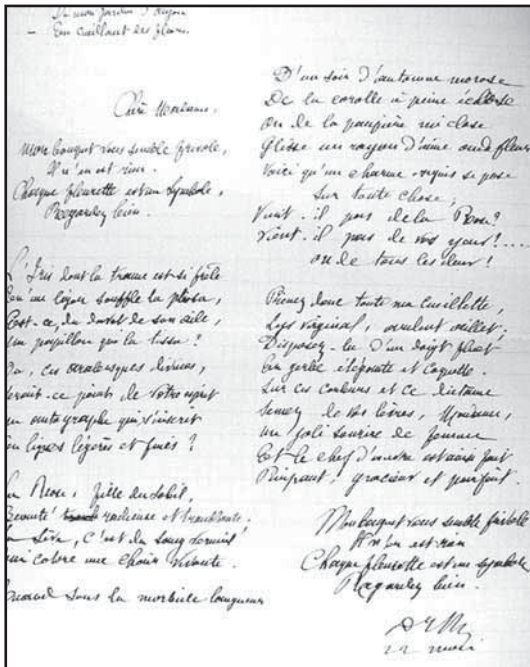 — En cueillant des fleurs.
Chère Madame,
Mon bouquet vous semble frivole,
Il n'en est rien.
Chaque fleurette est un symbole,
Regardez bien.
L'Iris dont la trame est si frêle
Qu'un léger souffle la plissa,
Est-ce, du duvet de son aile,
un papillon qui la tissa?
ces arabesques divines,
ce point de votre esprit
un autographe qui s'inscrit
en lignes légères et fines?
La Rose, fille du Soleil,
Beauté radieuse et tremblante;
La Sève, c'est du sang vermeil
qui colore une chair vivante.
Quand sous la morbide langueur
D'un soir d'automne morose
De la corolle à peine éclose
ou de la paupière mi close
Glisse un rayon d'âme ou de fleur
Voici qu'un charme exquis se pose
Sur toute chose,
Vient-il pas de la Rose?
Vient-il pas de vos yeux?....
ou de tous les deux!
Prenez donc toute ma cueillette,
Lys virginal, œillet;
Disposez-la d'un doigt fluet
En gerbe et coquette.
Sur ces couleurs et ce dictame
Semez de vos lèvres, Madame,
un joli sourire de femme
Et le chef d'œuvre est ainsi fait
Pimpant, gracieux et parfait.
Mon bouquet vous semble frivole
Il n'en est rien
Chaque fleurette est un symbole
Regardez bien.